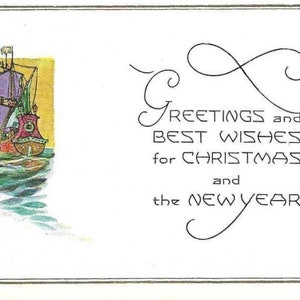 GREETINGS and
BEST WISHES
for CHRISTMAS
and
the NEW YEAR